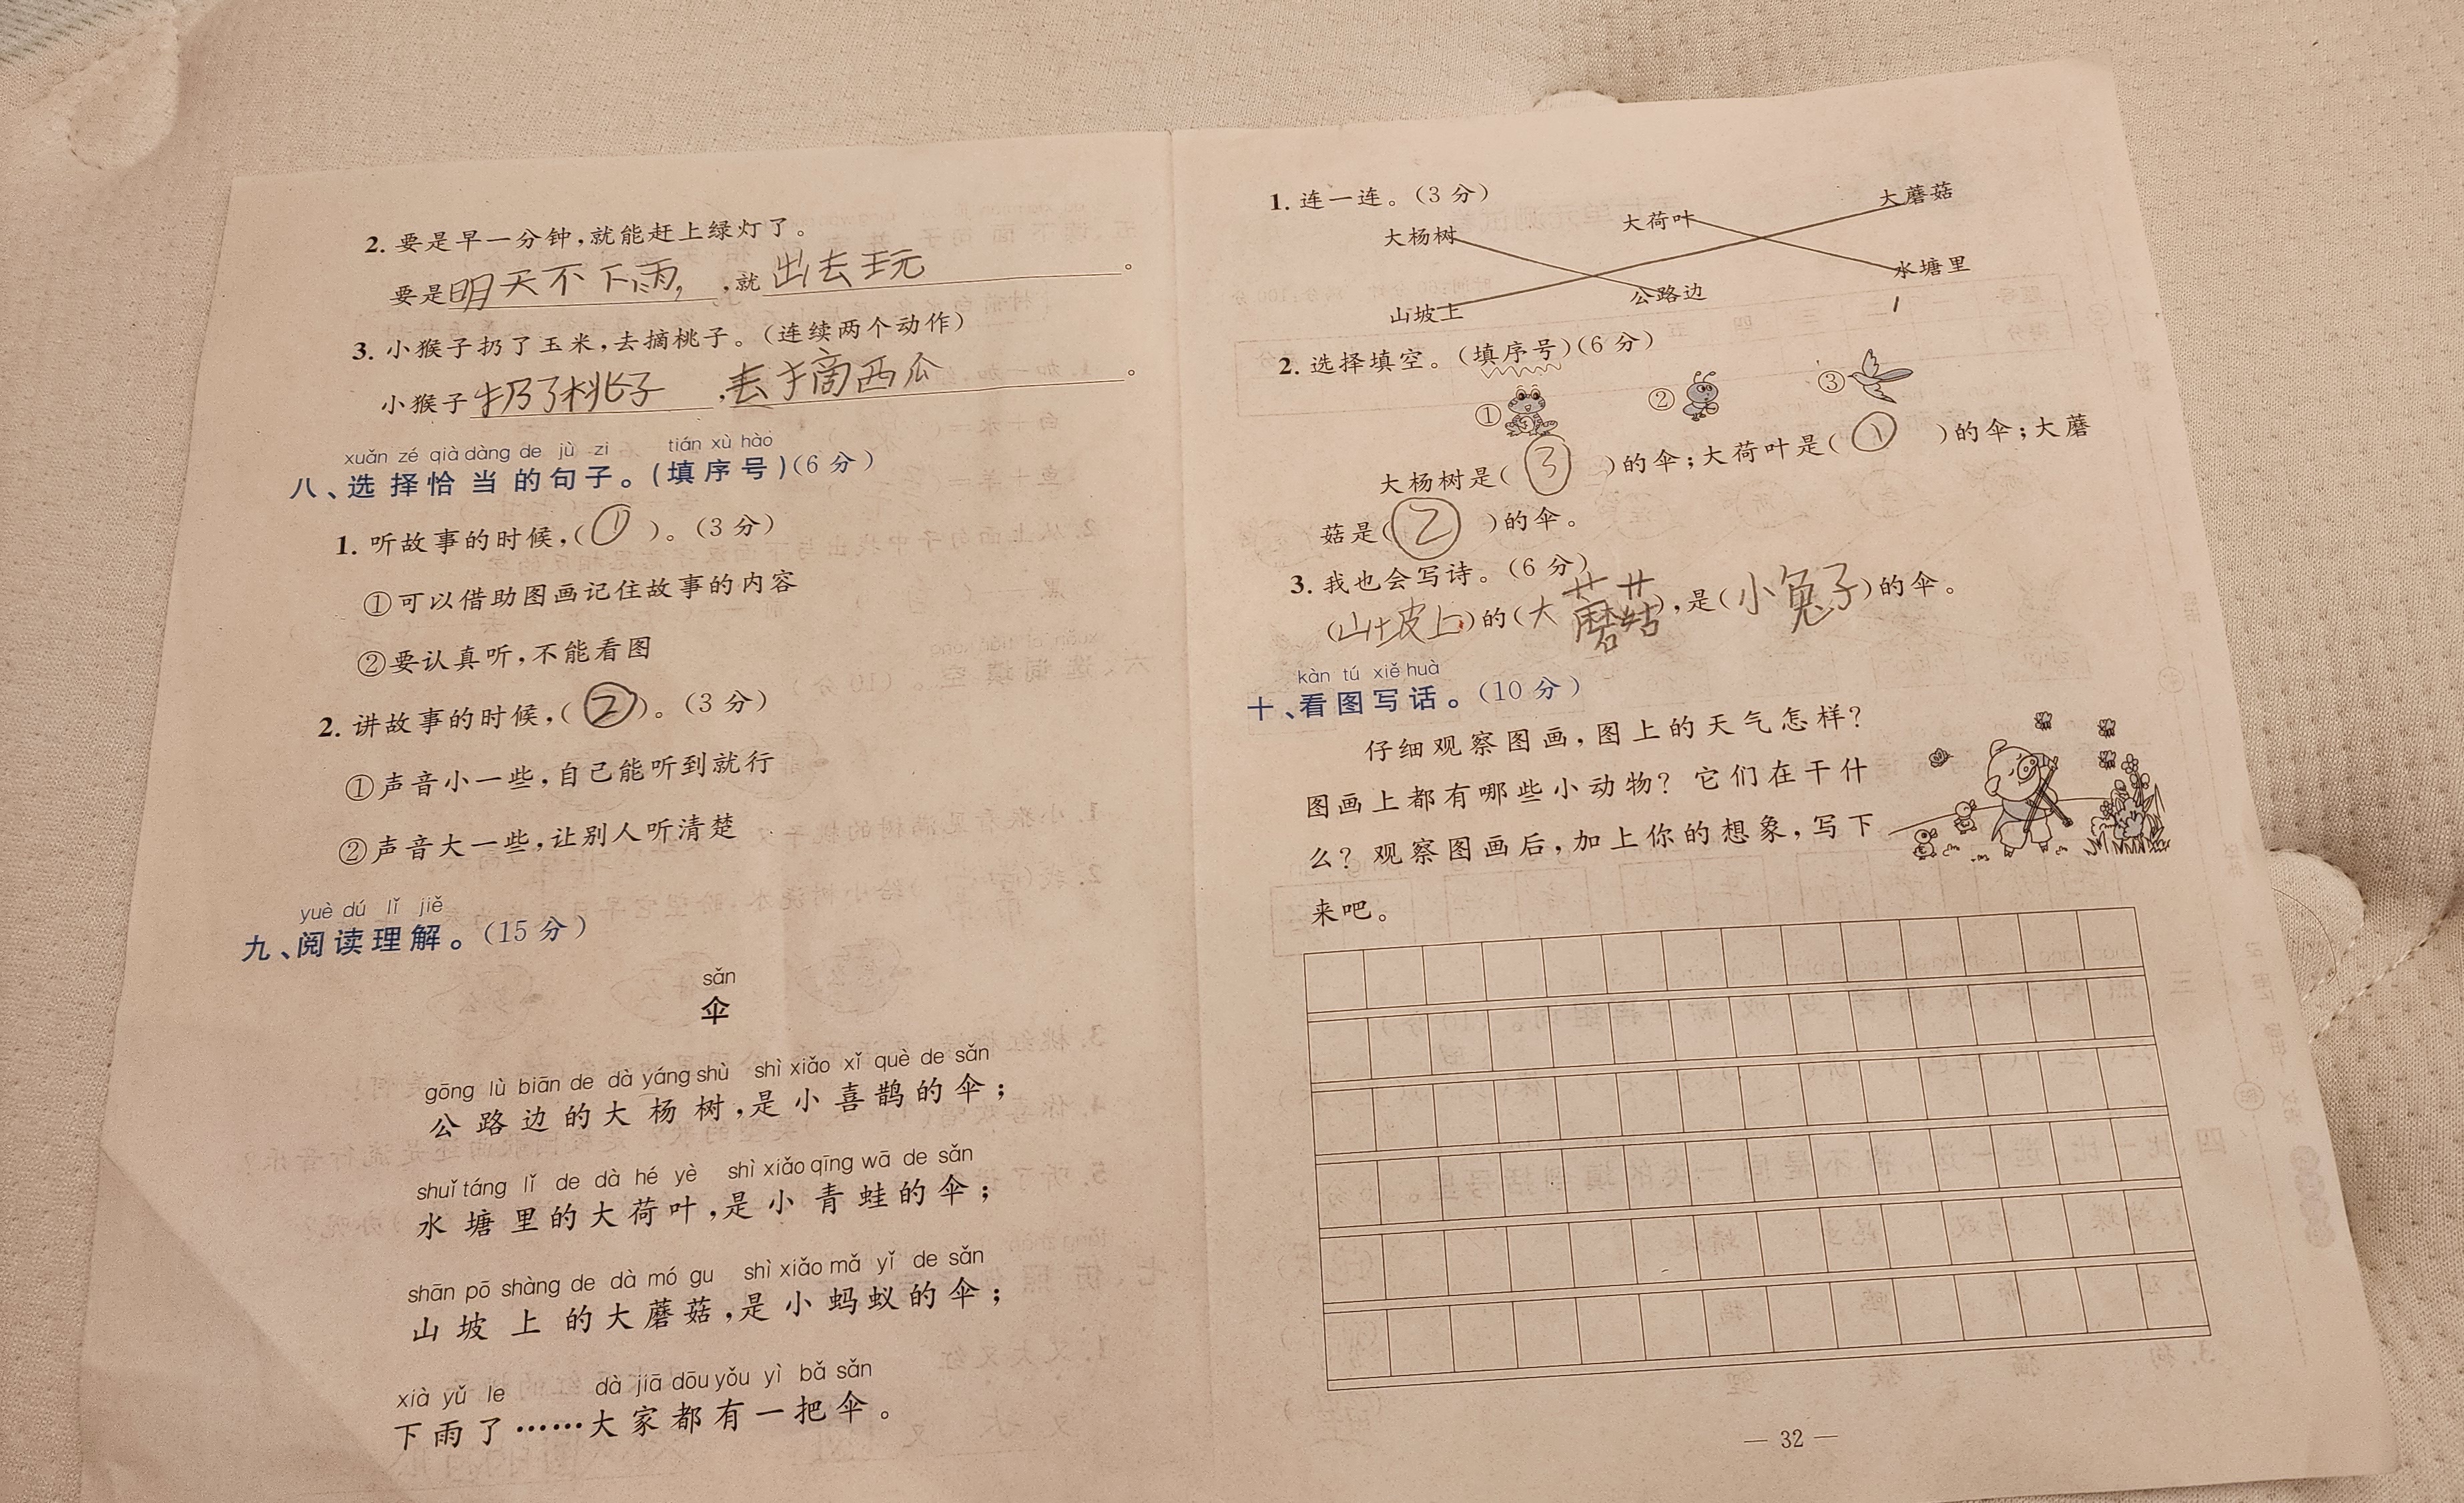 2. 要是早一分钟,就能赶上绿灯了。
要是明天不下雨,,就出去玩。
3. 小猴子扔了玉米,去摘桃子。(连续两个动作)
小猴子扔了桃子,去摘西瓜。
xuǎn zé qià dàng de jù zi tián xù hào
八、选择恰当的句子。(填序号)(6分)
1. 听故事的时候,(①)。(3分)
①可以借助图画记住故事的内容
②要认真听,不能看图
2. 讲故事的时候,(②)。(3分)
①声音小一些,自己能听到就行
②声音大一些,让别人听清楚
yuè dú lǐ jiě
九、阅读理解。(15分)
sǎn
伞
gōng lù biān de dà yáng shù shì xiǎo xǐ què de sǎn
公路边的大杨树,是小喜鹊的伞;
shuǐ táng lǐ de dà hé yè shì xiǎo qīng wā de sǎn
水塘里的大荷叶,是小青蛙的伞;
shān pō shàng de dà mó gu shì xiǎo mǎ yǐ de sǎn
山坡上的大蘑菇,是小蚂蚁的伞;
xià yǔ le dà jiā dōu yǒu yì bǎ sǎn
下雨了……大家都有一把伞。
1. 连一连。(3分)
大杨树 大荷叶 大蘑菇
山坡上 公路边 水塘里
2. 选择填空。(填序号)(6分)
① ② ③
大杨树是(③)的伞;大荷叶是(①)的伞;大蘑
菇是(②)的伞。
3. 我也会写诗。(6分)
(山坡上)的(大蘑菇),是(小兔子)的伞。
kàn tú xiě huà
十、看图写话。(10分)
仔细观察图画,图上的天气怎样?
图画上都有哪些小动物?它们在干什
么?观察图画后,加上你的想象,写下
来吧。
— 32 —